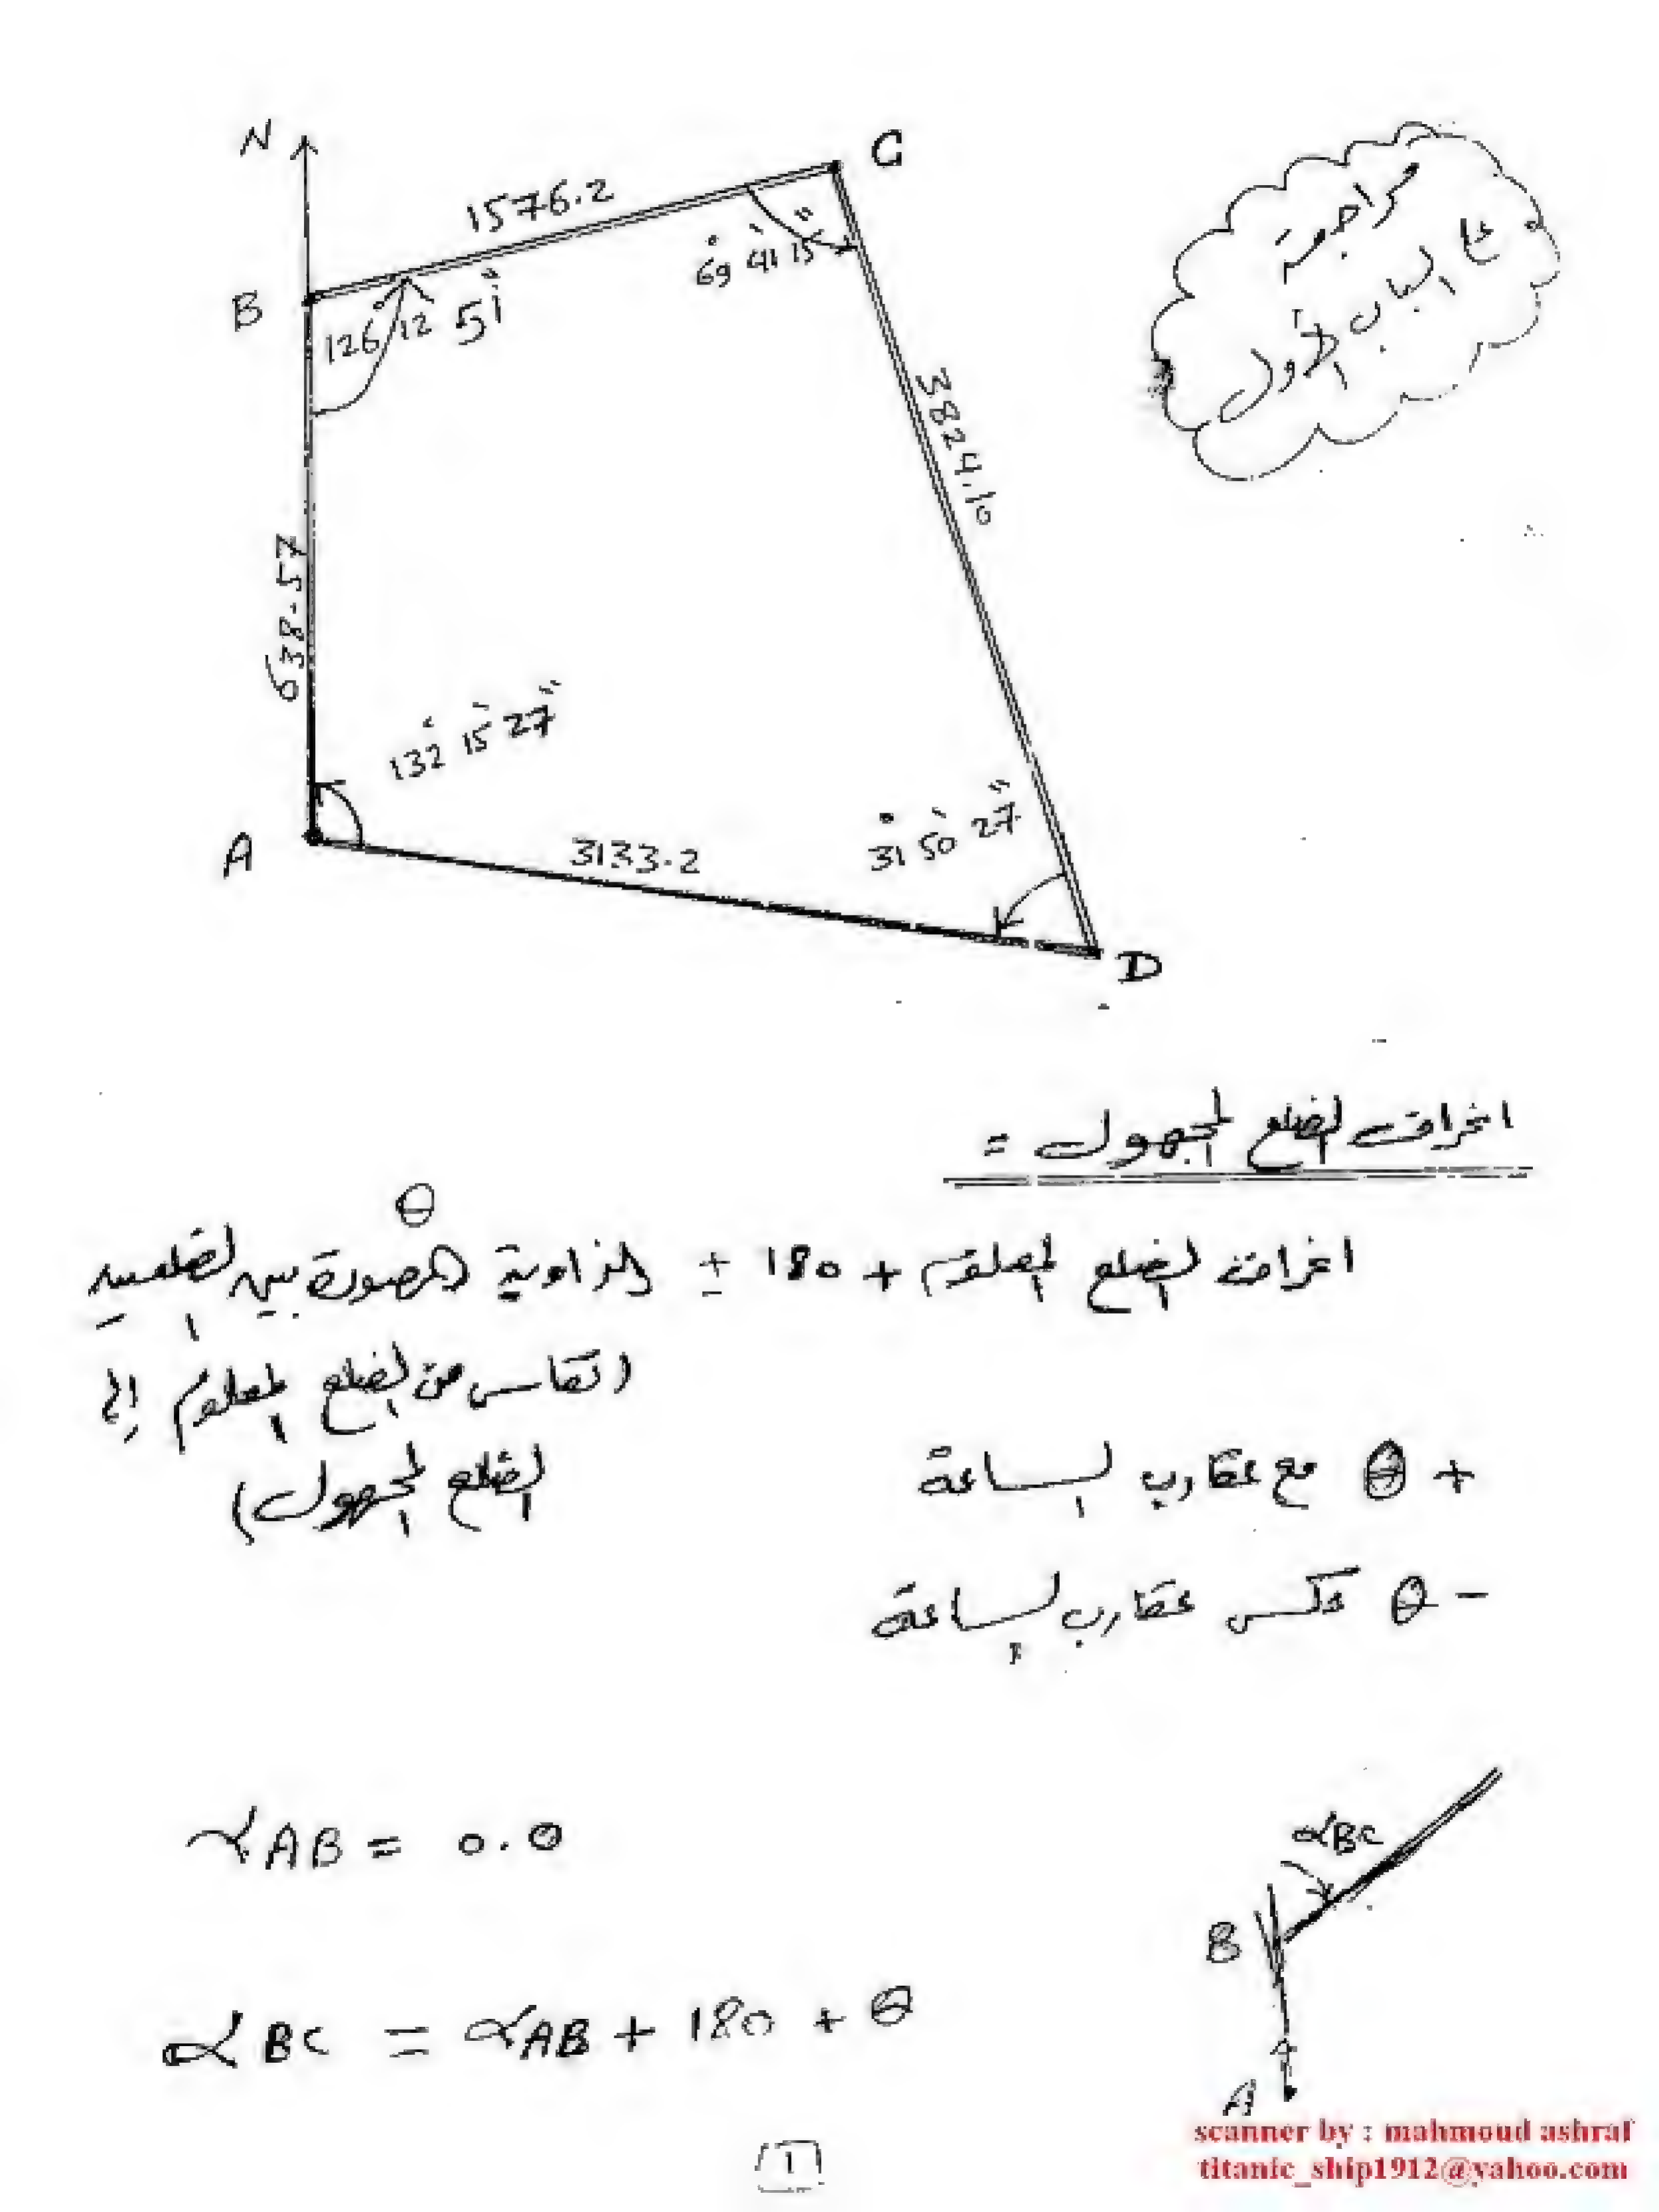 N
C
1576.2
69° 41' 15"
B
126 12 51
مراجعة
على الباب الأول
3824.10
638.57
132° 15' 27"
A
3133.2
31° 50' 27"
D
انحراف الضلع المجهول =
θ
انحراف الضلع المعلوم + 180 ± الزاوية المحصورة بين الضلعين
(تقاس من الضلع المعلوم إلى
الضلع المجهول)
+ θ مع عقارب الساعة
- θ عكس عقارب الساعة
αAB = 0.0
αBC
B
A
αBC = αAB + 180 + θ
1
scanner by : mahmoud ashraf
titanic_ship1912@yahoo.com